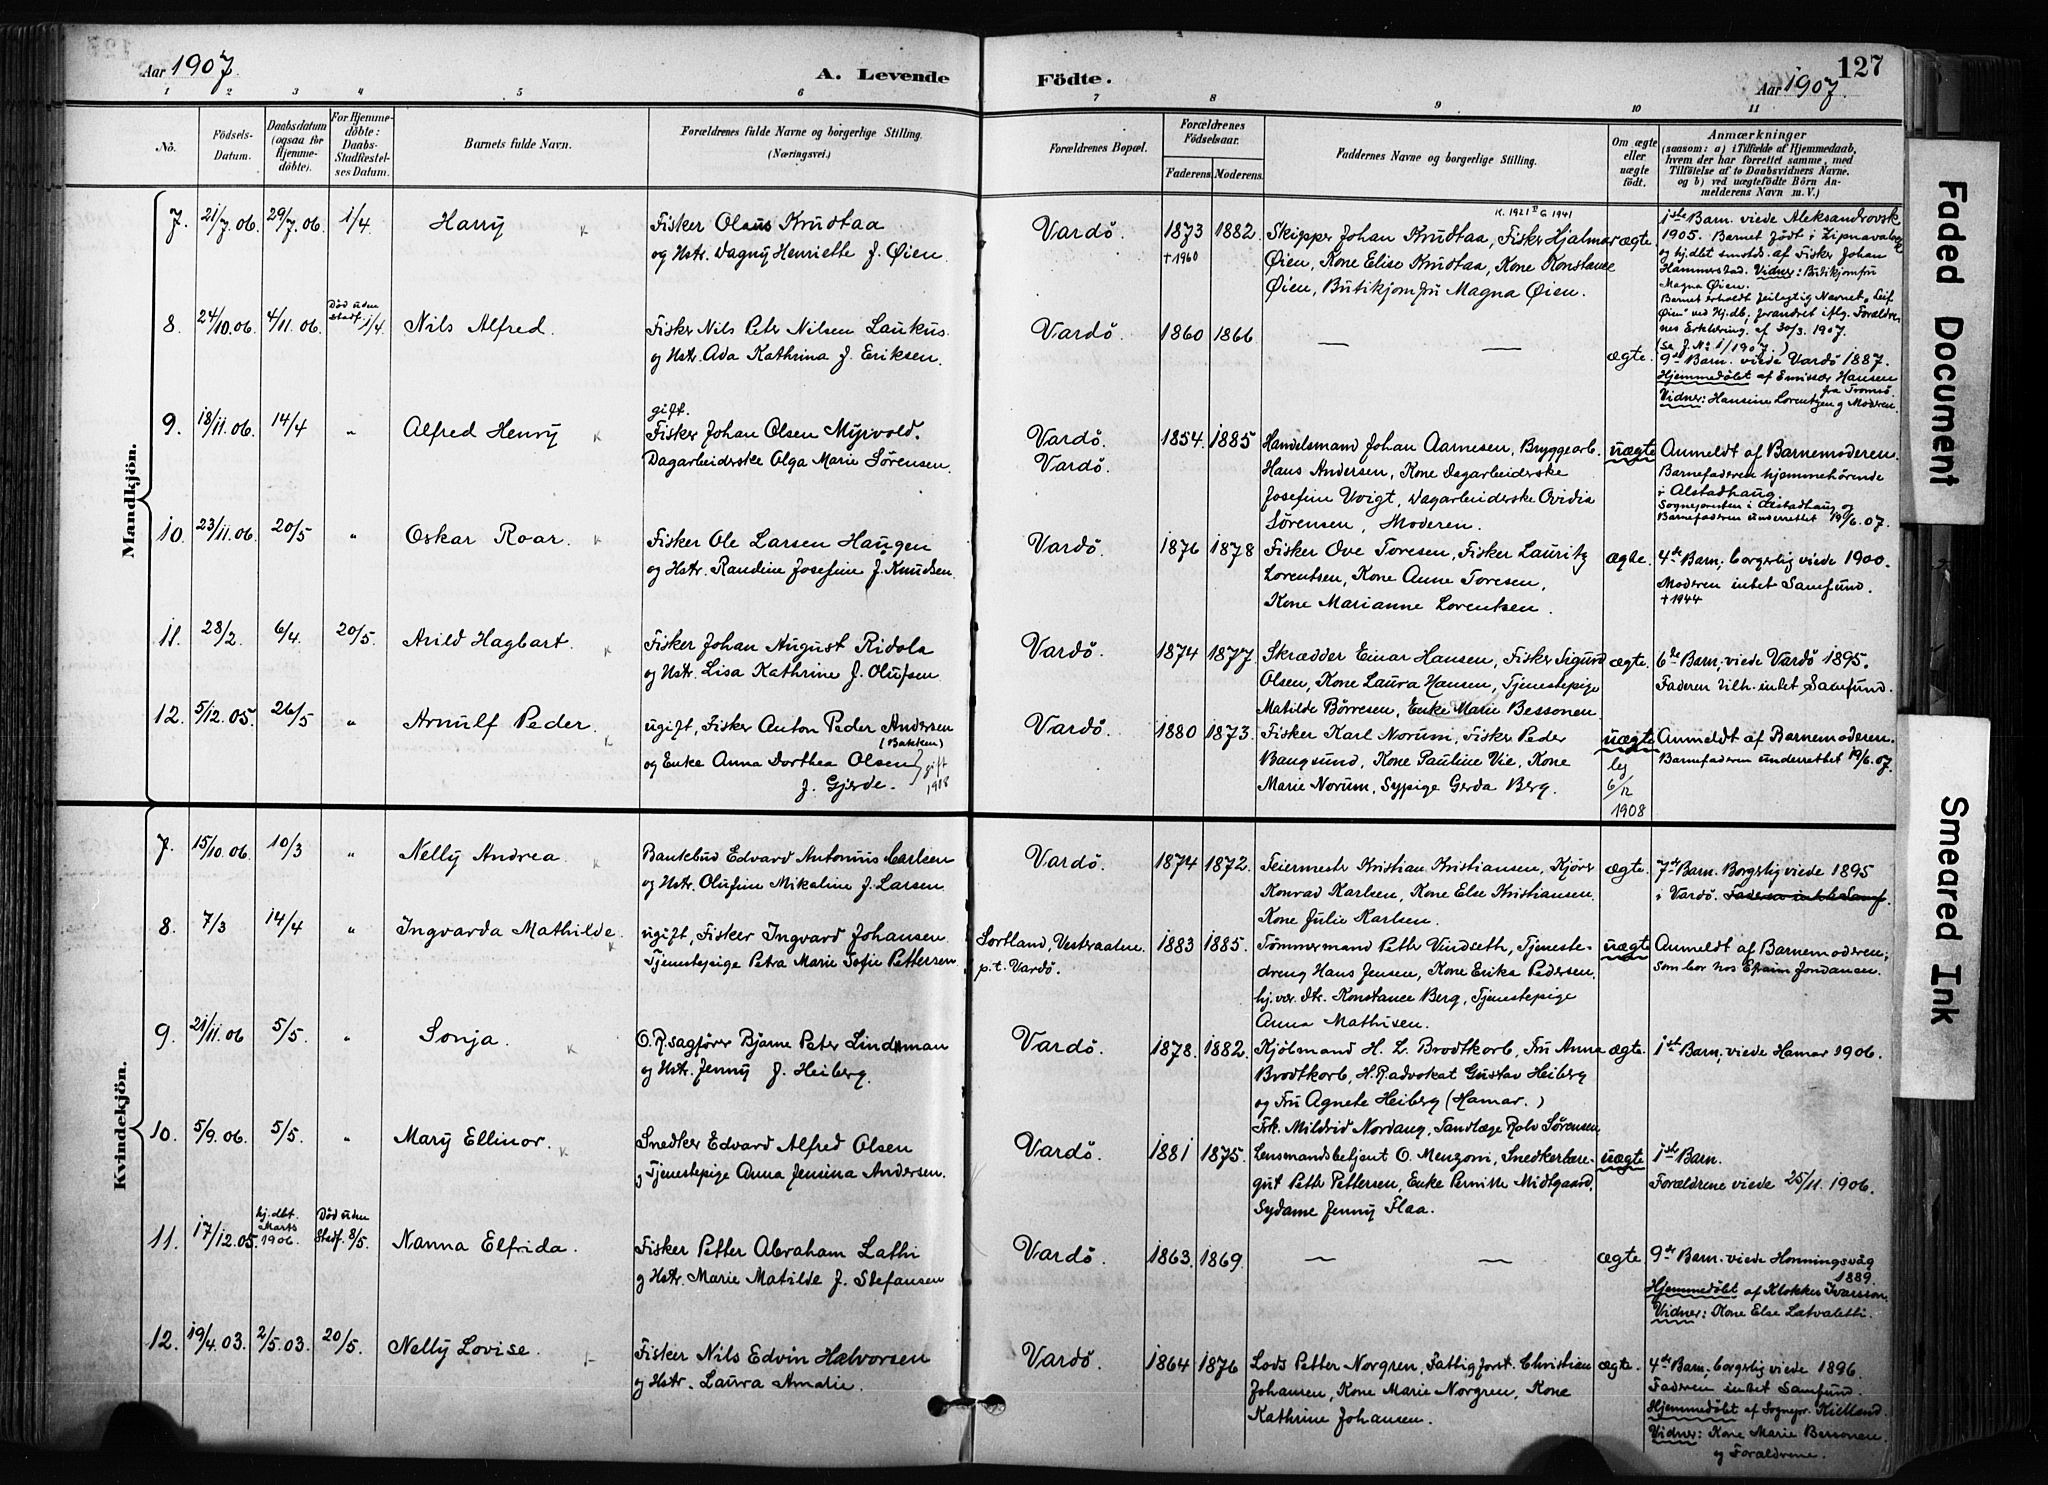 Aar 1907.
A. Levende Födte.
Aar 1907.
127
1 2 3 4 5 6 7 8 9 10 11
No.
Födsels-Datum.
Daabsdatum (ogsaa for Hjemmedöbte).
For Hjemmedöbte: Daabs-Stadfæstelses Datum.
Barnets fulde Navn.
Forældrenes fulde Navne og borgerlige Stilling.
(Næringsvei.)
Forældrenes Bopæl.
Forældrenes Födselsaar.
Faderens. Moderens.
Faddernes Navne og borgerlige Stilling.
Om ægte eller uægte födt.
Anmærkninger
(saasom: a) i Tilfælde af Hjemmedaab, hvem der har forrettet samme, med Tilföielse af to Daabsvidners Navne, og b) ved uægtefödte Börn Anmelderens Navn m. V.)
Mandkjön.
7. 21/7.06. 29/7.06. 1/4. Harry
Fisker Olaus Knudtaa
og Hstr. Dagny Henriette f. Øien.
Vardö. 1873 1882.
+ 1960
K. 1921 G 1941
Skipper Johan Knudtaa, Fisker Hjalmar
Øien, Kone Elise Knudtaa, Kone Konstance
Øien, Butikjomfru Magna Øien.
ægte.
1ste Barn. viede Aleksandrovsk
1905. Barnet födt i Zipnavalok
og hj.dbt smsteds. af Fisker Johan
Hammerstad. Vidner: Butikjomfru
Magna Øien.
Barnet erholdt feilagtig Navnet "Leif
Øien" ved Hj.db., forandret iflg. Forældre
nes Erklæring af 30/3. 1907.
(Se J. No 1/1907.)
8. 24/10.06. 4/11.06. Död uden Stadf. 1/4. Nils Alfred.
Fisker Nils Peter Nilsen Laukus
og Hstr. Ada Kathrina f. Eriksen.
Vardö. 1860 1866
— —
ægte.
9de Barn. viede Vardö 1887.
Hjemmedöbt af Emissær Hansen
fra Tromsö.
Vidner: Hansine Lorentzen og Moderen.
9. 18/11.06. 14/4 " Alfred Henry
gift.
Fisker Johan Olsen Myrvold.
Dagarbeiderske Olga Marie Sörensen.
Vardö.
Vardö.
1854. 1885.
Handelsmand Johan Aarnesen, Bryggearb.
Hans Andersen, Kone Dagarbeiderske
Josefine Voigt, Dagarbeiderske Ovidia
Sörensen, Moderen.
uægte
Anmeldt af Barnemoderen.
Barnefaderen hjemmehörende
i Alstadhaug.
Sognepresten i Alstadhaug og
Barnefaderen underrettet 19/6.07.
10. 23/11.06. 20/5 " Oskar Roar.
Fisker Ole Larsen Haugen
og Hstr. Randine Josefine f. Knudsen.
Vardö. 1876 1878
Fisker Ove Toresen, Fisker Lauritz
Lorentsen, Kone Anne Toresen,
Kone Marianne Lorentsen.
ægte.
4de Barn, borgerlig viede 1900.
Moderen intet Samfund.
+ 1944
11. 28/2. 6/4. 20/5. Arild Hagbart
Fisker Johan August Ridola
og Hstr. Lisa Kathrine f. Olufsen
Vardö. 1874 1877
Skrædder Einar Hansen, Fisker Sigurd
Olsen, Kone Laura Hansen, Tjenestepige
Matilde Börresen, Enke Marie Bessonen.
ægte.
6te Barn, viede Vardö 1895.
Faderen tilh. intet Samfund.
12. 5/12.05. 26/5 " Arnulf Peder.
ugift, Fisker Anton Peder Andersen
(Bakken)
og Enke Anna Dorthea Olsen
f. Gjerde.
gift 1908
Vardö. 1880 1873.
Fisker Karl Norum, Fisker Peder
Bangsund, Kone Pauline Vie, Kone
Marie Norum, Sypige Gerda Berg.
uægte
leg 6/12 1908
Anmeldt af Barnemoderen.
Barnefaderen underrettet 19/6.07.
Kvindekjön.
7. 15/10.06. 10/3 " Nelly Andrea.
Bankbud Edvard Antonius Carlsen
og Hstr. Olufine Mikaline f. Larsen.
Vardö. 1874 1872.
Feiermestr Kristian Kristiansen, Kjörer
Konrad Karlsen, Kone Else Kristiansen.
Kone Julie Karlsen.
ægte.
7de Barn. Borgerlig viede 1895
i Vardö. Faderen intet Samf.
8. 7/3 14/4 " Ingvarda Mathilde.
ugift, Fisker Ingvard Johansen
Tjenestepige Petra Marie Sofie Pettersen.
Sortland, Vesteraalen.
p.t. Vardö.
1883 1885.
Tömmermand Peth Vindseth, Tjeneste-
dreng Hans Jensen, Kone Erika Pedersen.
hj.vær. dtr. Konstance Berg, Tjenestepige
Anna Mathisen.
uægte
Anmeldt af Barnemoderen;
som bor hos Efraim Jordansen.
9. 21/11.06 5/5. " Sonja.
O.R.sagförer Bjarne Peter Lindeman
og Hstr. Jenny f. Heiberg.
Vardö. 1878. 1882.
Kjölmand H. L. Brodtkorb, Fru Anna
Brodtkorb, H.R.advokat Gustav Heiberg
og Fru Agnete Heiberg (Hamar.)
Frk. Mildrid Nordang, Tandlæge Rolv Sörensen
ægte.
1ste Barn, viede Hamar 1906.
10. 5/9.06. 5/5. " Mary Ellinor.
Snedker Edvard Alfred Olsen
og Tjenestepige Anna Jensina Andersen.
Vardö. 1881 1875.
Lensmandsbetjent O. Menzoni, Snedkerlære-
gut Peth Pettersen, Enke Pernitte Midtgaard,
Sydame Jenny Flaa.
uægte
1ste Barn.
Forældrene viede 25/11. 1906.
11. 17/12.05. hj.dbt. Marts 1906. Död uden Stadf. 8/5. Nanna Elfrida.
Fisker Petter Abraham Lathi
og Hstr. Marie Matilde f. Stefansen
Vardö. 1863. 1869.
— —
ægte.
9de Barn. viede Honningsvåg
1889.
Hjemmedöbt af Klokker Ivarsson.
Vidner: Kone Else Latvaletti.
12. 19/4.03. 2/5.03. 20/5. Nelly Lovise.
Fisker Nils Edvin Halvorsen
og Hstr. Laura Amalie.
Vardö. 1864 1876
Lods Petter Norgren, Fattigforst. Christian
Johansen, Kone Marie Norgren, Kone
Kathrine Johansen.
ægte.
4de Barn, borgerlig viede 1896.
Faderen intet Samfund.
Hjemmedöbt af Sognepr. Kielland.
Vidner: Kone Marie Bessonen.
og Forældrene.
Faded Document
Smeared Ink